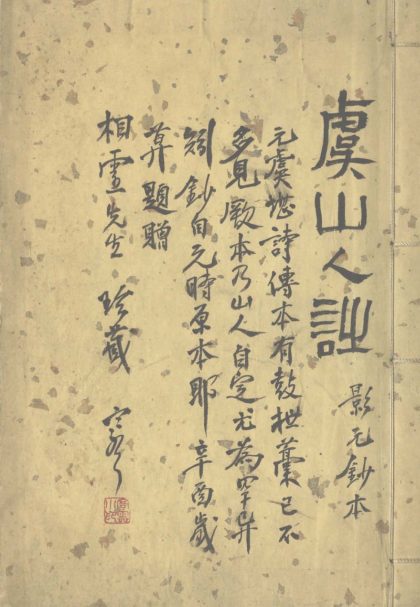 虞山人詩
影元鈔本
元虞堪詩傳本有鼓枻藁已不
多見厥本乃山人自定尤為罕异
矧鈔自元時原本耶辛酉歲
莫題贈
相靈先生 珍藏 寒雲